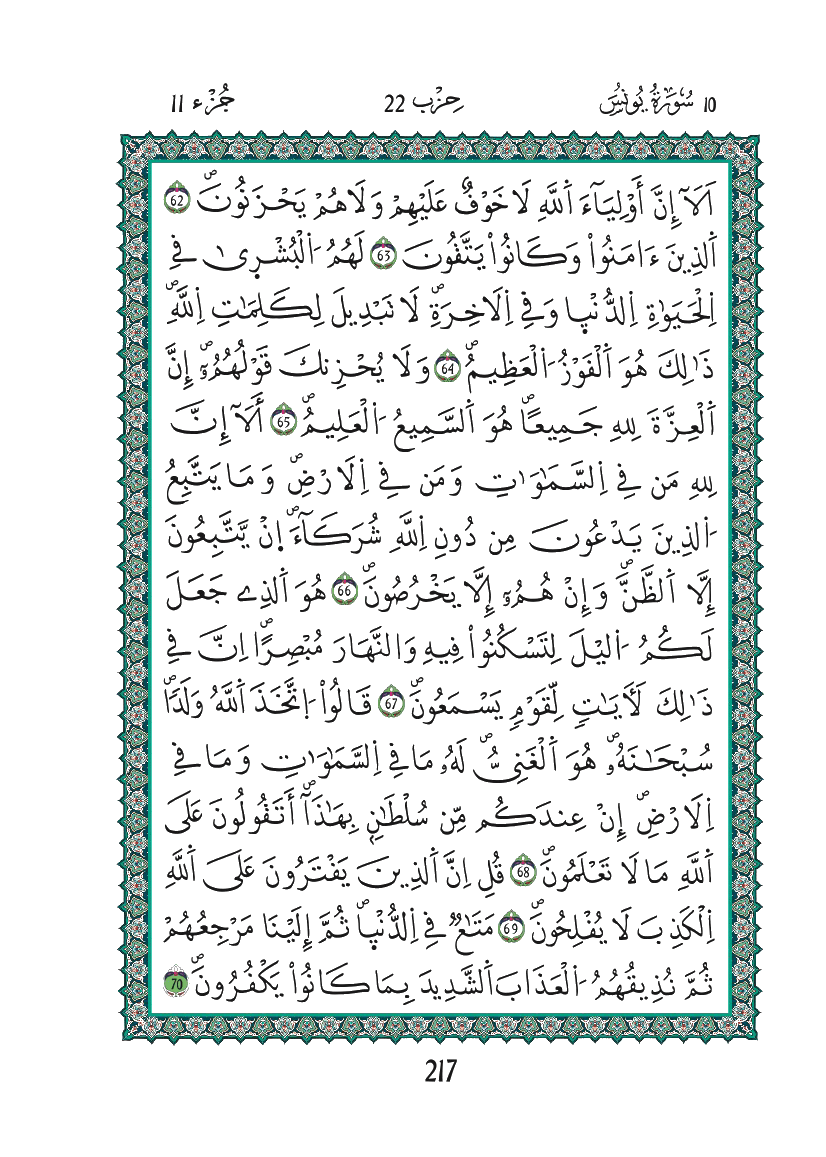 10 سُورَةُ يُونِسَ حِزْب 22 جُزْء 11
اَلَآ إِنَّ أَوْلِيَآءَ اَللَّهِ لَا خَوْفٌ عَلَيْهِمْ وَلَا هُمْ يَحْزَنُونَۖ 62
اَلذِينَ ءَامَنُواْ وَكَانُواْ يَتَّقُونَ 63 لَهُمُ اُلْبُشْر۪ىٰ فِے
اِلْحَيَوٰةِ اِلدُّنْي۪ا وَفِے اِلَاخِرَةِۖ لَا تَبْدِيلَ لِكَلِمَٰتِ اِللَّهِۖ
ذَٰلِكَ هُوَ اَلْفَوْزُ اُلْعَظِيمُۖ 64 وَلَا يُحْزِنكَ قَوْلُهُمُۥٓۖ إِنَّ
اَلْعِزَّةَ لِلهِ جَمِيعاًۖ هُوَ اَلسَّمِيعُ اُلْعَلِيمُۖ 65 أَلَآ إِنَّ
لِلهِ مَن فِے اِلسَّمَٰوَٰتِ وَمَن فِے اِلَارْضِۖ وَمَا يَتَّبِعُ
اُلذِينَ يَدْعُونَ مِن دُونِ اِللَّهِ شُرَكَآءَۖ اِنْ يَّتَّبِعُونَ
إِلَّا اَلظَّنَّۖ وَإِنْ هُمُۥٓ إِلَّا يَخْرُصُونَۖ 66 هُوَ اَلذِے جَعَلَ
لَكُمُ اُليْلَ لِتَسْكُنُواْ فِيهِ وَالنَّهَارَ مُبْصِراًۖ اِنَّ فِے
ذَٰلِكَ لَأٓيَٰتٖ لِّقَوْمٖ يَسْمَعُونَۖ 67 قَالُواْ اُ۪تَّخَذَ اَللَّهُ وَلَداٗۖ
سُبْحَٰنَهُۥۖ هُوَ اَلْغَنِيُّۖ لَهُۥ مَا فِے اِلسَّمَٰوَٰتِ وَمَا فِے
اِلَارْضِۖ إِنْ عِندَكُم مِّن سُلْطَٰنِۢ بِهَٰذَآۖ أَتَقُولُونَ عَلَى
اَللَّهِ مَا لَا تَعْلَمُونَۖ 68 قُلِ اِنَّ اَلذِينَ يَفْتَرُونَ عَلَى اَللَّهِ
اِلْكَذِبَ لَا يُفْلِحُونَۖ 69 مَتَٰعٌ فِے اِلدُّنْي۪اۖ ثُمَّ إِلَيْنَا مَرْجِعُهُمْ
ثُمَّ نُذِيقُهُمُ اُلْعَذَابَ اَلشَّدِيدَ بِمَا كَانُواْ يَكْفُرُونَۖ 70
217